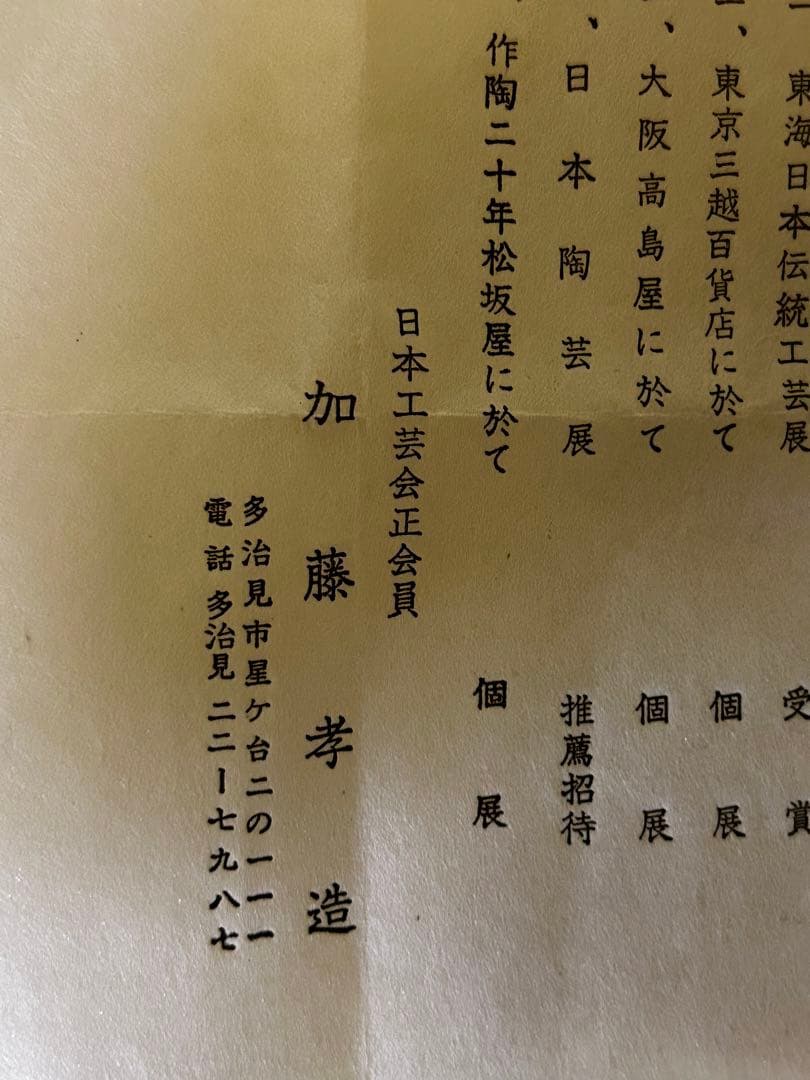 東海日本伝統工芸展 受賞
、東京三越百貨店に於て 個展
、大阪高島屋に於て 個展
、日本陶芸展 推薦招待
作陶二十年松坂屋に於て 個展
日本工芸会正会員
加藤孝造
多治見市星ケ台二の一一一
電話多治見二二ー七九八七